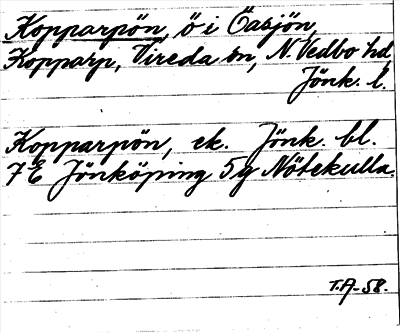 Kopparpön, ö i Öasjön,
Kopparp, Vireda sn, N. Vedbo hd,
Jönk. l.
Kopparpön, ek. Jönk. bl.
7E Jönköping 5g Nötekulla.
T.A-58.